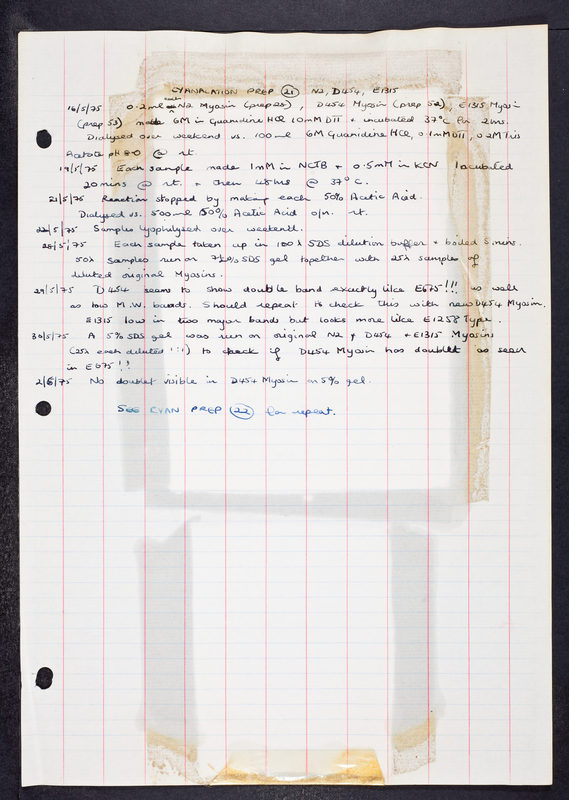 CYANALATION PREP (21) N2, D454, E1315
16/5/75 0.2ml each N2 Myosin (prep 23), D454 Myosin (prep 52), E1315 Myosin
(prep 53) made 6M in Guanidine HCl 10mM DTT + incubated 37°C for 2hrs.
Dialysed over weekend vs. 100ml 6M Guanidine HCl, 0.1mM DTT, 0.2M Tris
Acetate pH 8.0 @ rt.
19/5/75 Each sample made 1mM in NCTB + 0.5mM in KCN Incubated
20mins @ rt. + then 48hrs @ 37°C.
21/5/75 Reaction stopped by making each 50% Acetic Acid.
Dialysed vs. 500ml 50% Acetic Acid o/n. rt.
22/5/75 Samples lyophilysed over weekend.
28/5/75 Each sample taken up in 100λ SDS dilution buffer + boiled 5mins.
50λ samples run on 7½% SDS gel together with 25λ samples of
diluted original Myosins.
29/5/75 D454 seems to show double band exactly like E675!!! as well
as low M.W. bands. Should repeat to check this with new D454 Myosin.
E1315 low in two major bands but looks more like E1258 Type.
30/5/75 A 5% SDS gel was run on original N2 + D454 + E1315 Myosins
(25λ each diluted !!!) to check if D454 Myosin has doublet as seen
in E675!!
2/6/75 No doublet visible in D454 Myosin on 5% gel.
SEE CYAN PREP (22) for repeat.